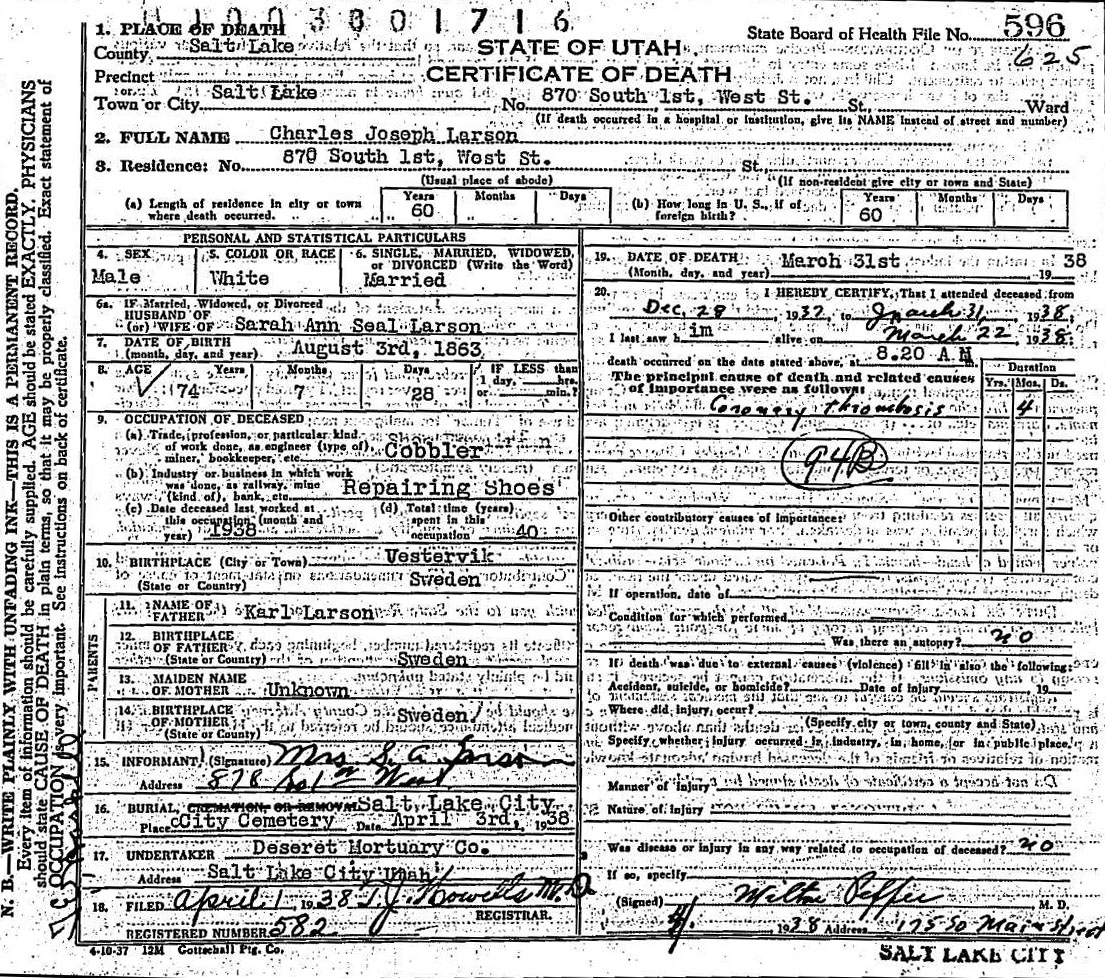 1003801716
1. PLACE OF DEATH
County Salt Lake
STATE OF UTAH
State Board of Health File No. 596
625
CERTIFICATE OF DEATH
Precinct
Town or City Salt Lake No. 870 South 1st, West St. St., Ward
(If death occurred in a hospital or institution, give its NAME instead of street and number)
2. FULL NAME Charles Joseph Larson
3. Residence: No. 870 South 1st, West St. St.
(Usual place of abode) (If non-resident give city or town and State)
(a) Length of residence in city or town where death occurred. Years 60 Months Days
(b) How long in U. S., if of foreign birth? Years 60 Months Days
PERSONAL AND STATISTICAL PARTICULARS
4. SEX Male
5. COLOR OR RACE White
6. SINGLE, MARRIED, WIDOWED, or DIVORCED (Write the Word) Married
6a. IF Married, Widowed, or Divorced
HUSBAND OF
(or) WIFE OF Sarah Ann Seal Larson
7. DATE OF BIRTH
(month, day, and year) August 3rd, 1863
8. AGE Years 74 Months 7 Days 28 IF LESS than 1 day, hrs. or min.?
9. OCCUPATION OF DECEASED
(a) Trade, profession, or particular kind of work done, as engineer (type of) miner, bookkeeper, etc. Cobbler
(b) Industry or business in which work was done, as railway, mine (kind of), bank, etc. Repairing Shoes
(c) Date deceased last worked at this occupation (month and year) 1938
(d) Total time (years) spent in this occupation 40
10. BIRTHPLACE (City or Town) Vestervik
(State or Country) Sweden
PARENTS
11. NAME OF FATHER Karl Larson
12. BIRTHPLACE OF FATHER (State or Country) Sweden
13. MAIDEN NAME OF MOTHER Unknown
14. BIRTHPLACE OF MOTHER (State or Country) Sweden
15. INFORMANT (Signature) Mrs S. A. Larson
Address 878 So 1st West
16. BURIAL, CREMATION, OR REMOVAL Salt Lake City
Place City Cemetery Date April 3rd, 1938
17. UNDERTAKER Deseret Mortuary Co.
Address Salt Lake City Utah
18. FILED April 1 1938 T. J. Howells M.D.
REGISTRAR.
REGISTERED NUMBER 582
4-10-37 12M Gottschall Ptg. Co.
19. DATE OF DEATH March 31st 1938
(Month, day, and year)
20. I HEREBY CERTIFY, That I attended deceased from
Dec. 28, 1937, to March 31, 1938,
I last saw him alive on March 22 1938
death occurred on the date stated above, at 8.20 A.M.
The principal cause of death and related causes of importance were as follows:
Duration
Yrs. Mos. Ds.
Coronary Thrombosis 4
94B
Other contributory causes of importance:
If operation, date of
Condition for which performed
Was there an autopsy? no
If death was due to external causes (violence) fill in also the following:
Accident, suicide, or homicide? Date of injury 19
Where did injury occur?
(Specify city or town, county and State)
Specify whether injury occurred in industry, in home, or in public place.
Manner of injury
Nature of injury
Was disease or injury in any way related to occupation of deceased? no
If so, specify
(Signed) Milton Pepper M. D.
4/1 1938 Address 175 So Main Street
SALT LAKE CITY
N. B.—WRITE PLAINLY WITH UNFADING INK—THIS IS A PERMANENT RECORD.
Every item of information should be carefully supplied. AGE should be stated EXACTLY. PHYSICIANS
should state CAUSE OF DEATH in plain terms, so that it may be properly classified. Exact statement of
OCCUPATION is very important. See instructions on back of certificate.